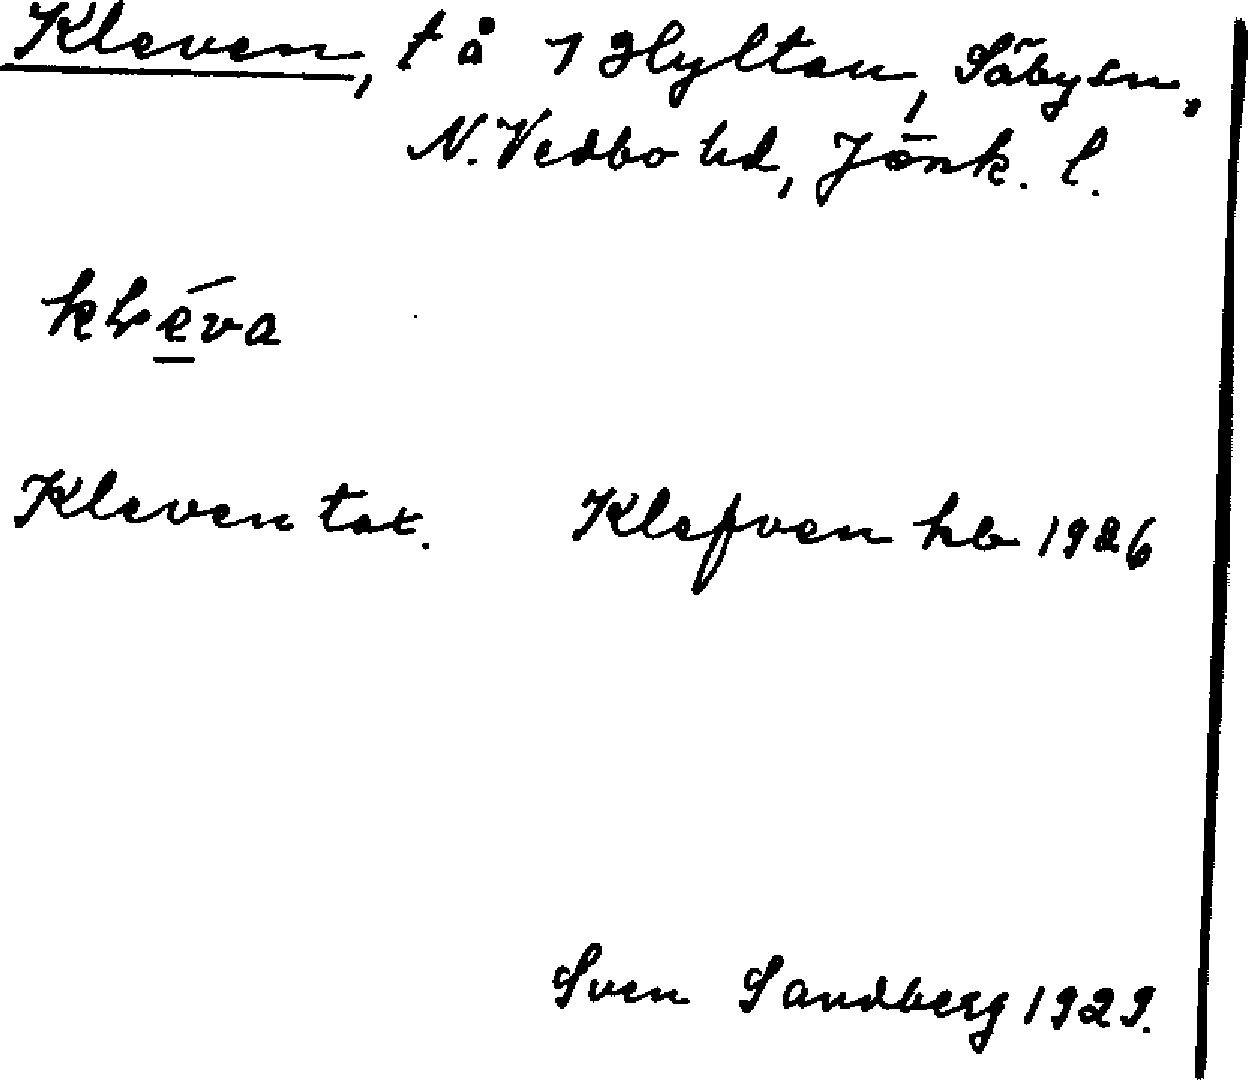 Kleven, t å 1 Hyltan, Säby sn,
N. Vedbo hd, Jönk. l.
kléva
Kleven tax. Klefven hb 1926
Sven Sandberg 1929.